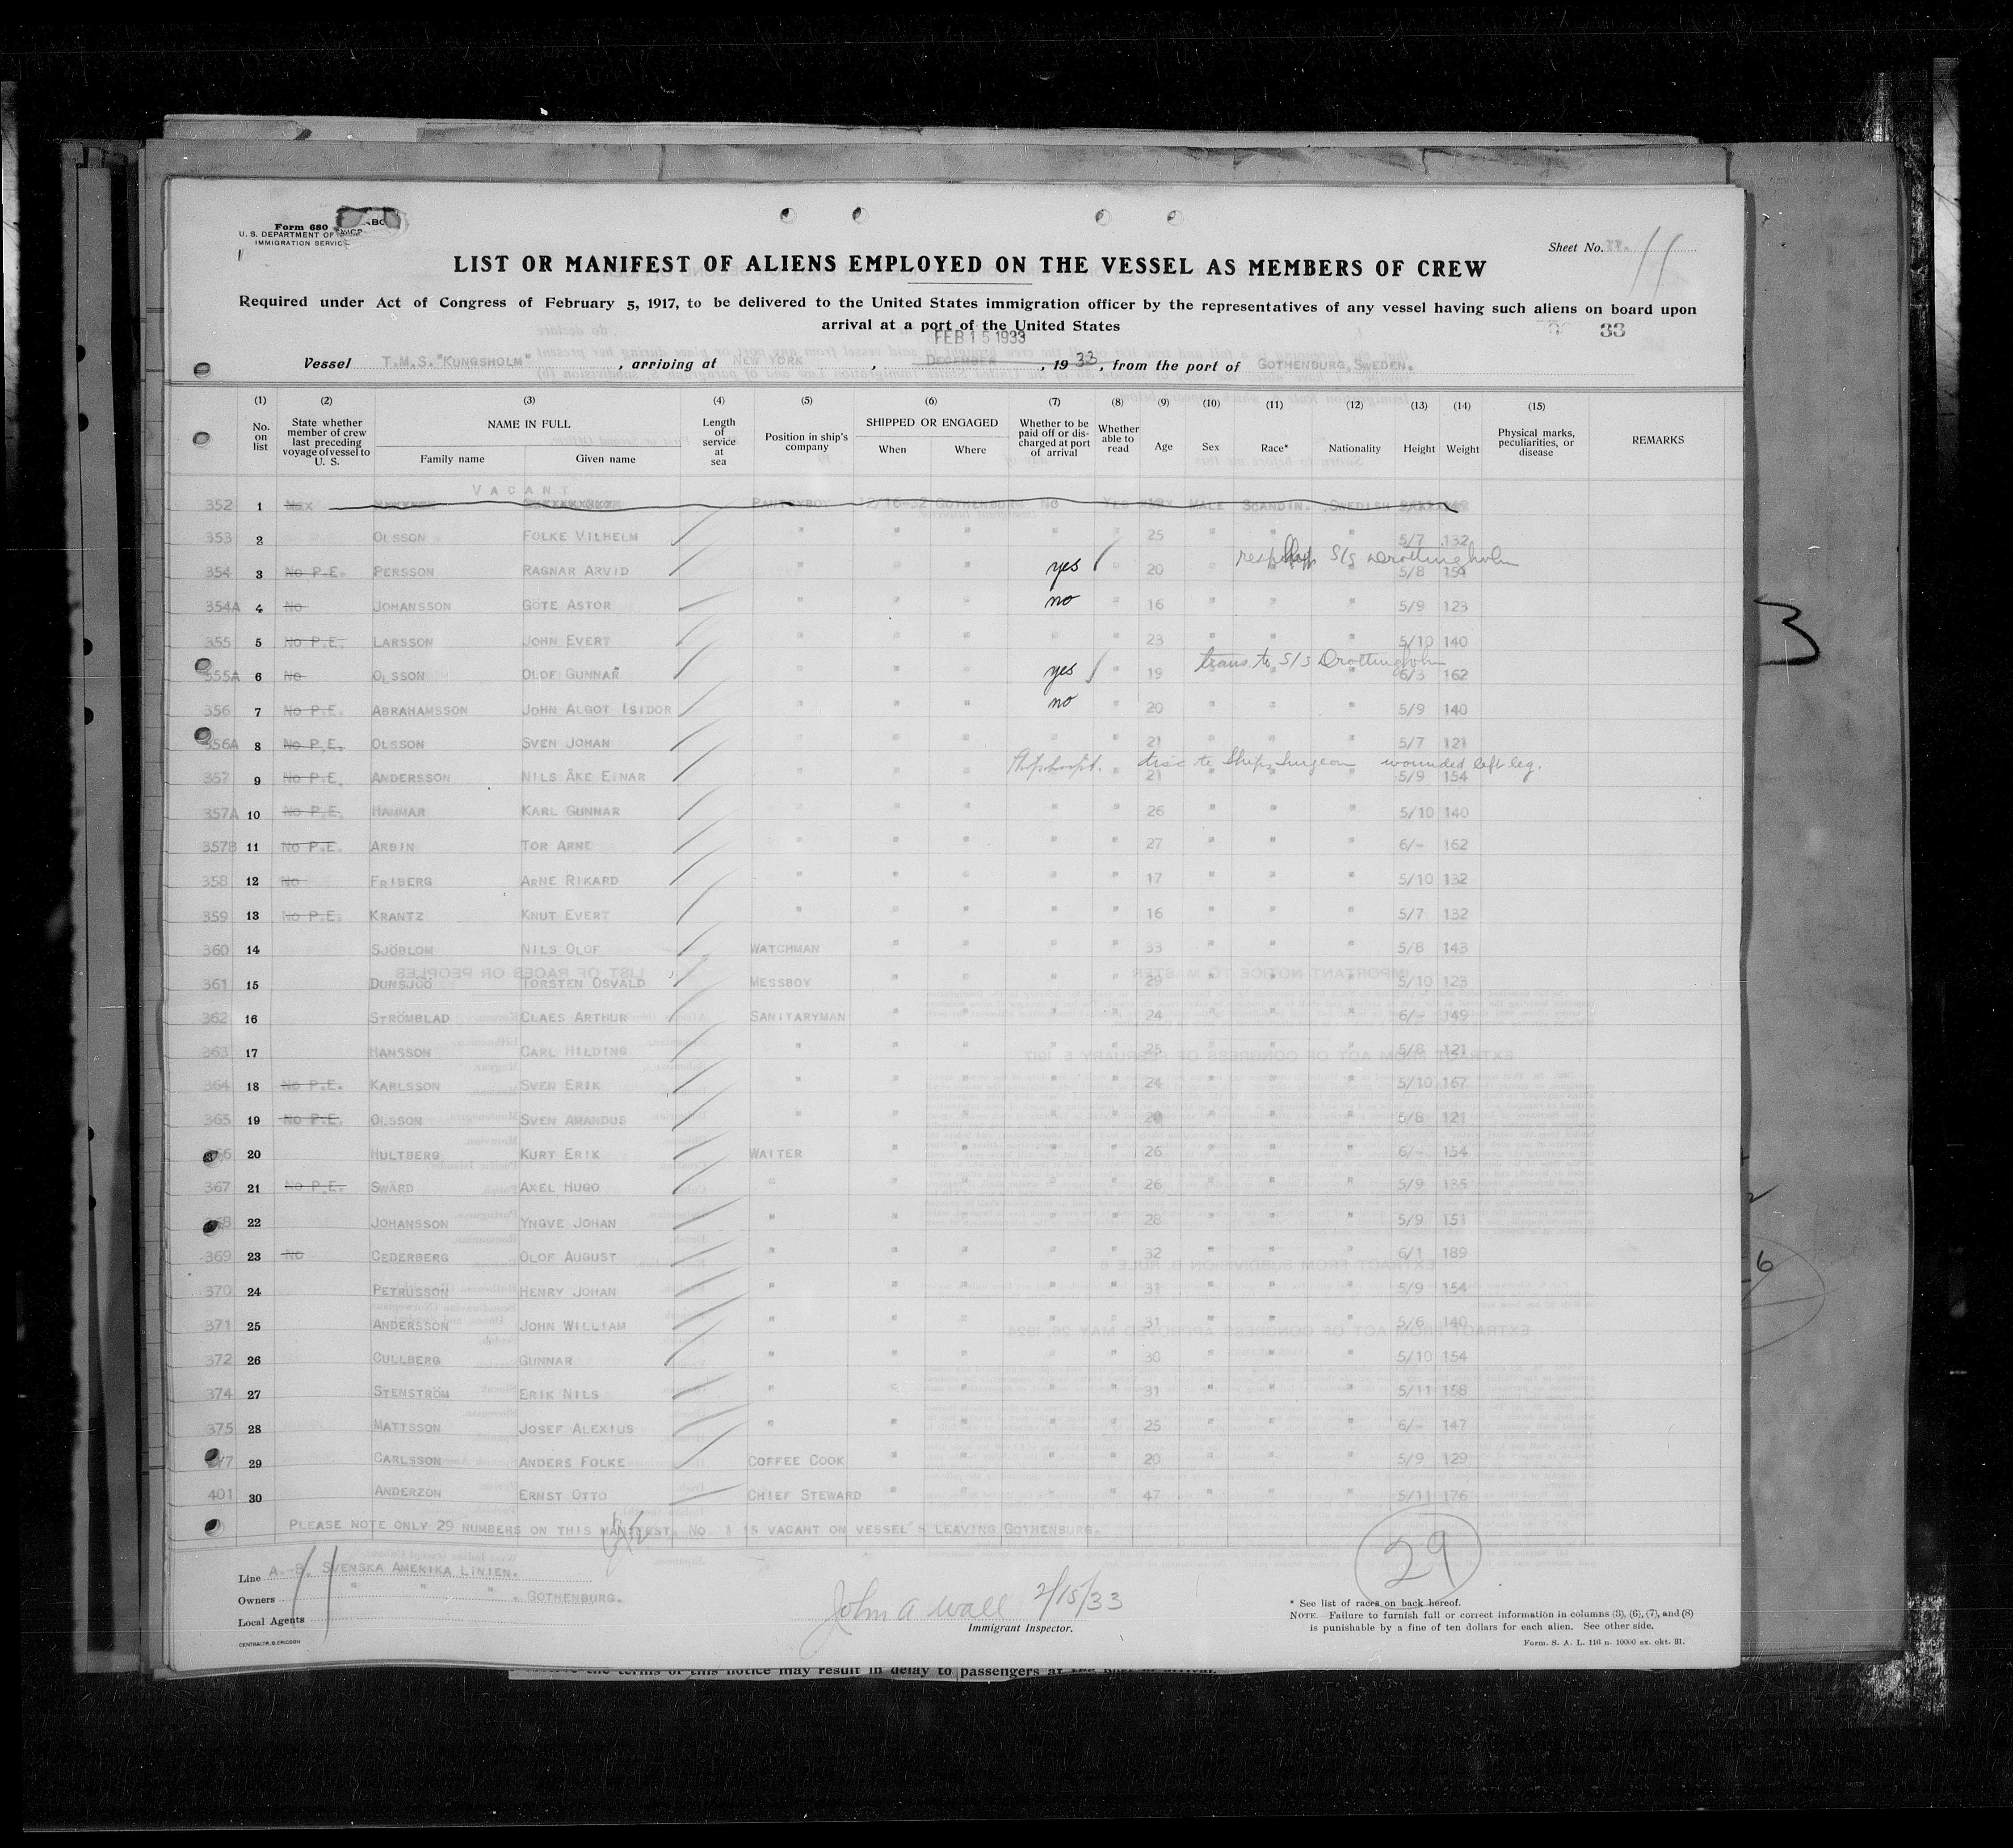 Form 680
U. S. DEPARTMENT OF
IMMIGRATION SERVICE
Sheet No. 11. 11
LIST OR MANIFEST OF ALIENS EMPLOYED ON THE VESSEL AS MEMBERS OF CREW
Required under Act of Congress of February 5, 1917, to be delivered to the United States immigration officer by the representatives of any vessel having such aliens on board upon
arrival at a port of the United States
FEB 15 1933
33
Vessel T.M.S."KUNGSHOLM", arriving at NEW YORK, DECEMBER, 1933, from the port of GOTHENBURG, SWEDEN.
(1) (2) (3) (4) (5) (6) (7) (8) (9) (10) (11) (12) (13) (14) (15)
No. on list State whether member of crew last preceding voyage of vessel to U. S. NAME IN FULL Family name Given name Length of service at sea Position in ship's company SHIPPED OR ENGAGED When Where Whether to be paid off or discharged at port of arrival Whether able to read Age Sex Race* Nationality Height Weight Physical marks, peculiarities, or disease REMARKS
VACANT
352 1 PANTRYBOY 12/16-32 GOTHENBURG NO YES MALE SCANDIN. SWEDISH
353 2 OLSSON FOLKE VILHELM " " " " " 25 " " " 5/7 132
S/S Drottningholm
354 3 No P.E. PERSSON RAGNAR ARVID " " " yes " 20 " " " 5/8 154
354A 4 No JOHANSSON GÖTE ASTOR " " " no " 16 " " " 5/9 123
355 5 No P.E. LARSSON JOHN EVERT " " " " " 23 " " " 5/10 140
trans. to S/S Drottningholm
355A 6 No OLSSON OLOF GUNNAR " " " yes " 19 " " " 6/3 162
356 7 No P.E. ABRAHAMSSON JOHN ALGOT ISIDOR " " " no " 20 " " " 5/9 140
356A 8 No P.E. OLSSON SVEN JOHAN " " " " " 21 " " " 5/7 121
to Ships Surgeon wounded left leg.
357 9 No P.E. ANDERSSON NILS ÅKE EINAR " " " " 21 5/9 154
357A 10 No P.E. HAMMAR KARL GUNNAR " " " " " 26 " " " 5/10 140
357B 11 No P.E. ARBIN TOR ARNE " " " " " 27 " " " 6/- 162
358 12 No FRIBERG ARNE RIKARD " " " " " 17 " " " 5/10 132
359 13 No P.E. KRANTZ KNUT EVERT " " " " " 16 " " " 5/7 132
360 14 SJÖBLOM NILS OLOF WATCHMAN " " " " 33 " " " 5/8 143
361 15 DUNSJÖÖ TORSTEN OSVALD MESSBOY " " " " 29 " " " 5/10 123
362 16 STRÖMBLAD CLAES ARTHUR SANITARYMAN " " " " 24 " " " 6/- 149
363 17 HANSSON CARL HILDING " " " " " 25 " " " 5/8 121
364 18 No P.E. KARLSSON SVEN ERIK " " " " " 24 " " " 5/10 167
365 19 No P.E. OLSSON SVEN AMANDUS " " " " " 20 " " " 5/8 121
20 HULTBERG KURT ERIK WAITER " " " " 26 " " " 6/- 154
367 21 No P.E. SWÄRD AXEL HUGO " " " " " 26 " " " 5/9 135
22 JOHANSSON YNGVE JOHAN " " " " " 28 " " " 5/9 151
369 23 No CEDERBERG OLOF AUGUST " " " " " 32 " " " 6/1 189
370 24 PETRUSSON HENRY JOHAN " " " " " 31 " " " 5/9 154
371 25 ANDERSSON JOHN WILLIAM " " " " " 31 " " " 5/6 140
372 26 CULLBERG GUNNAR " " " " " 30 " " " 5/10 154
374 27 STENSTRÖM ERIK NILS " " " " " 31 " " " 5/11 158
375 28 MATTSSON JOSEF ALEXIUS " " " " " 25 " " " 6/- 147
29 CARLSSON ANDERS FOLKE COFFEE COOK " " " " 20 " " " 5/9 129
401 30 ANDERZON ERNST OTTO CHIEF STEWARD " " " " 47 " " " 5/11 176
PLEASE NOTE ONLY 29 NUMBERS ON THIS MANIFEST. NO 1 IS VACANT ON VESSEL'S LEAVING GOTHENBURG.
29
Line A.-B. SVENSKA AMERIKA LINIEN.
Owners " " " . GOTHENBURG.
Local Agents
11
CENTRALTR. G. ERICSON
John A Wall 2/15/33
Immigrant Inspector.
* See list of races on back hereof.
NOTE Failure to furnish full or correct information in columns (3), (6), (7), and (8)
is punishable by a fine of ten dollars for each alien. See other side.
Form. S. A. L. 116 n. 10000 ex. okt. 31.
3
6
the terms of this notice may result in delay to passengers at the port of arrival.